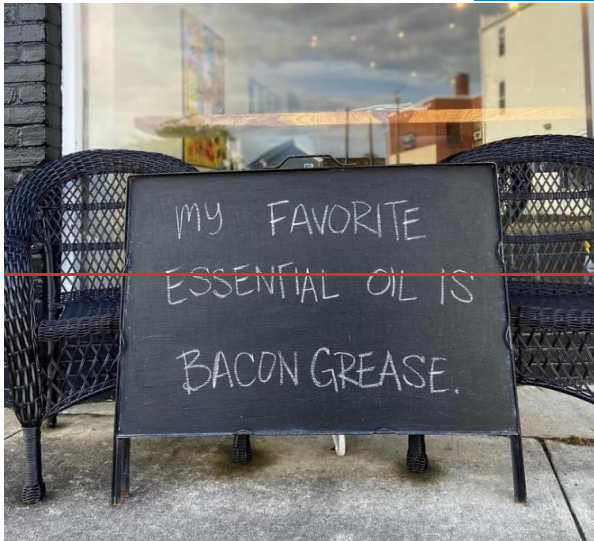 my FAVORITE
ESSENTIAL OIL IS
BACON GREASE.